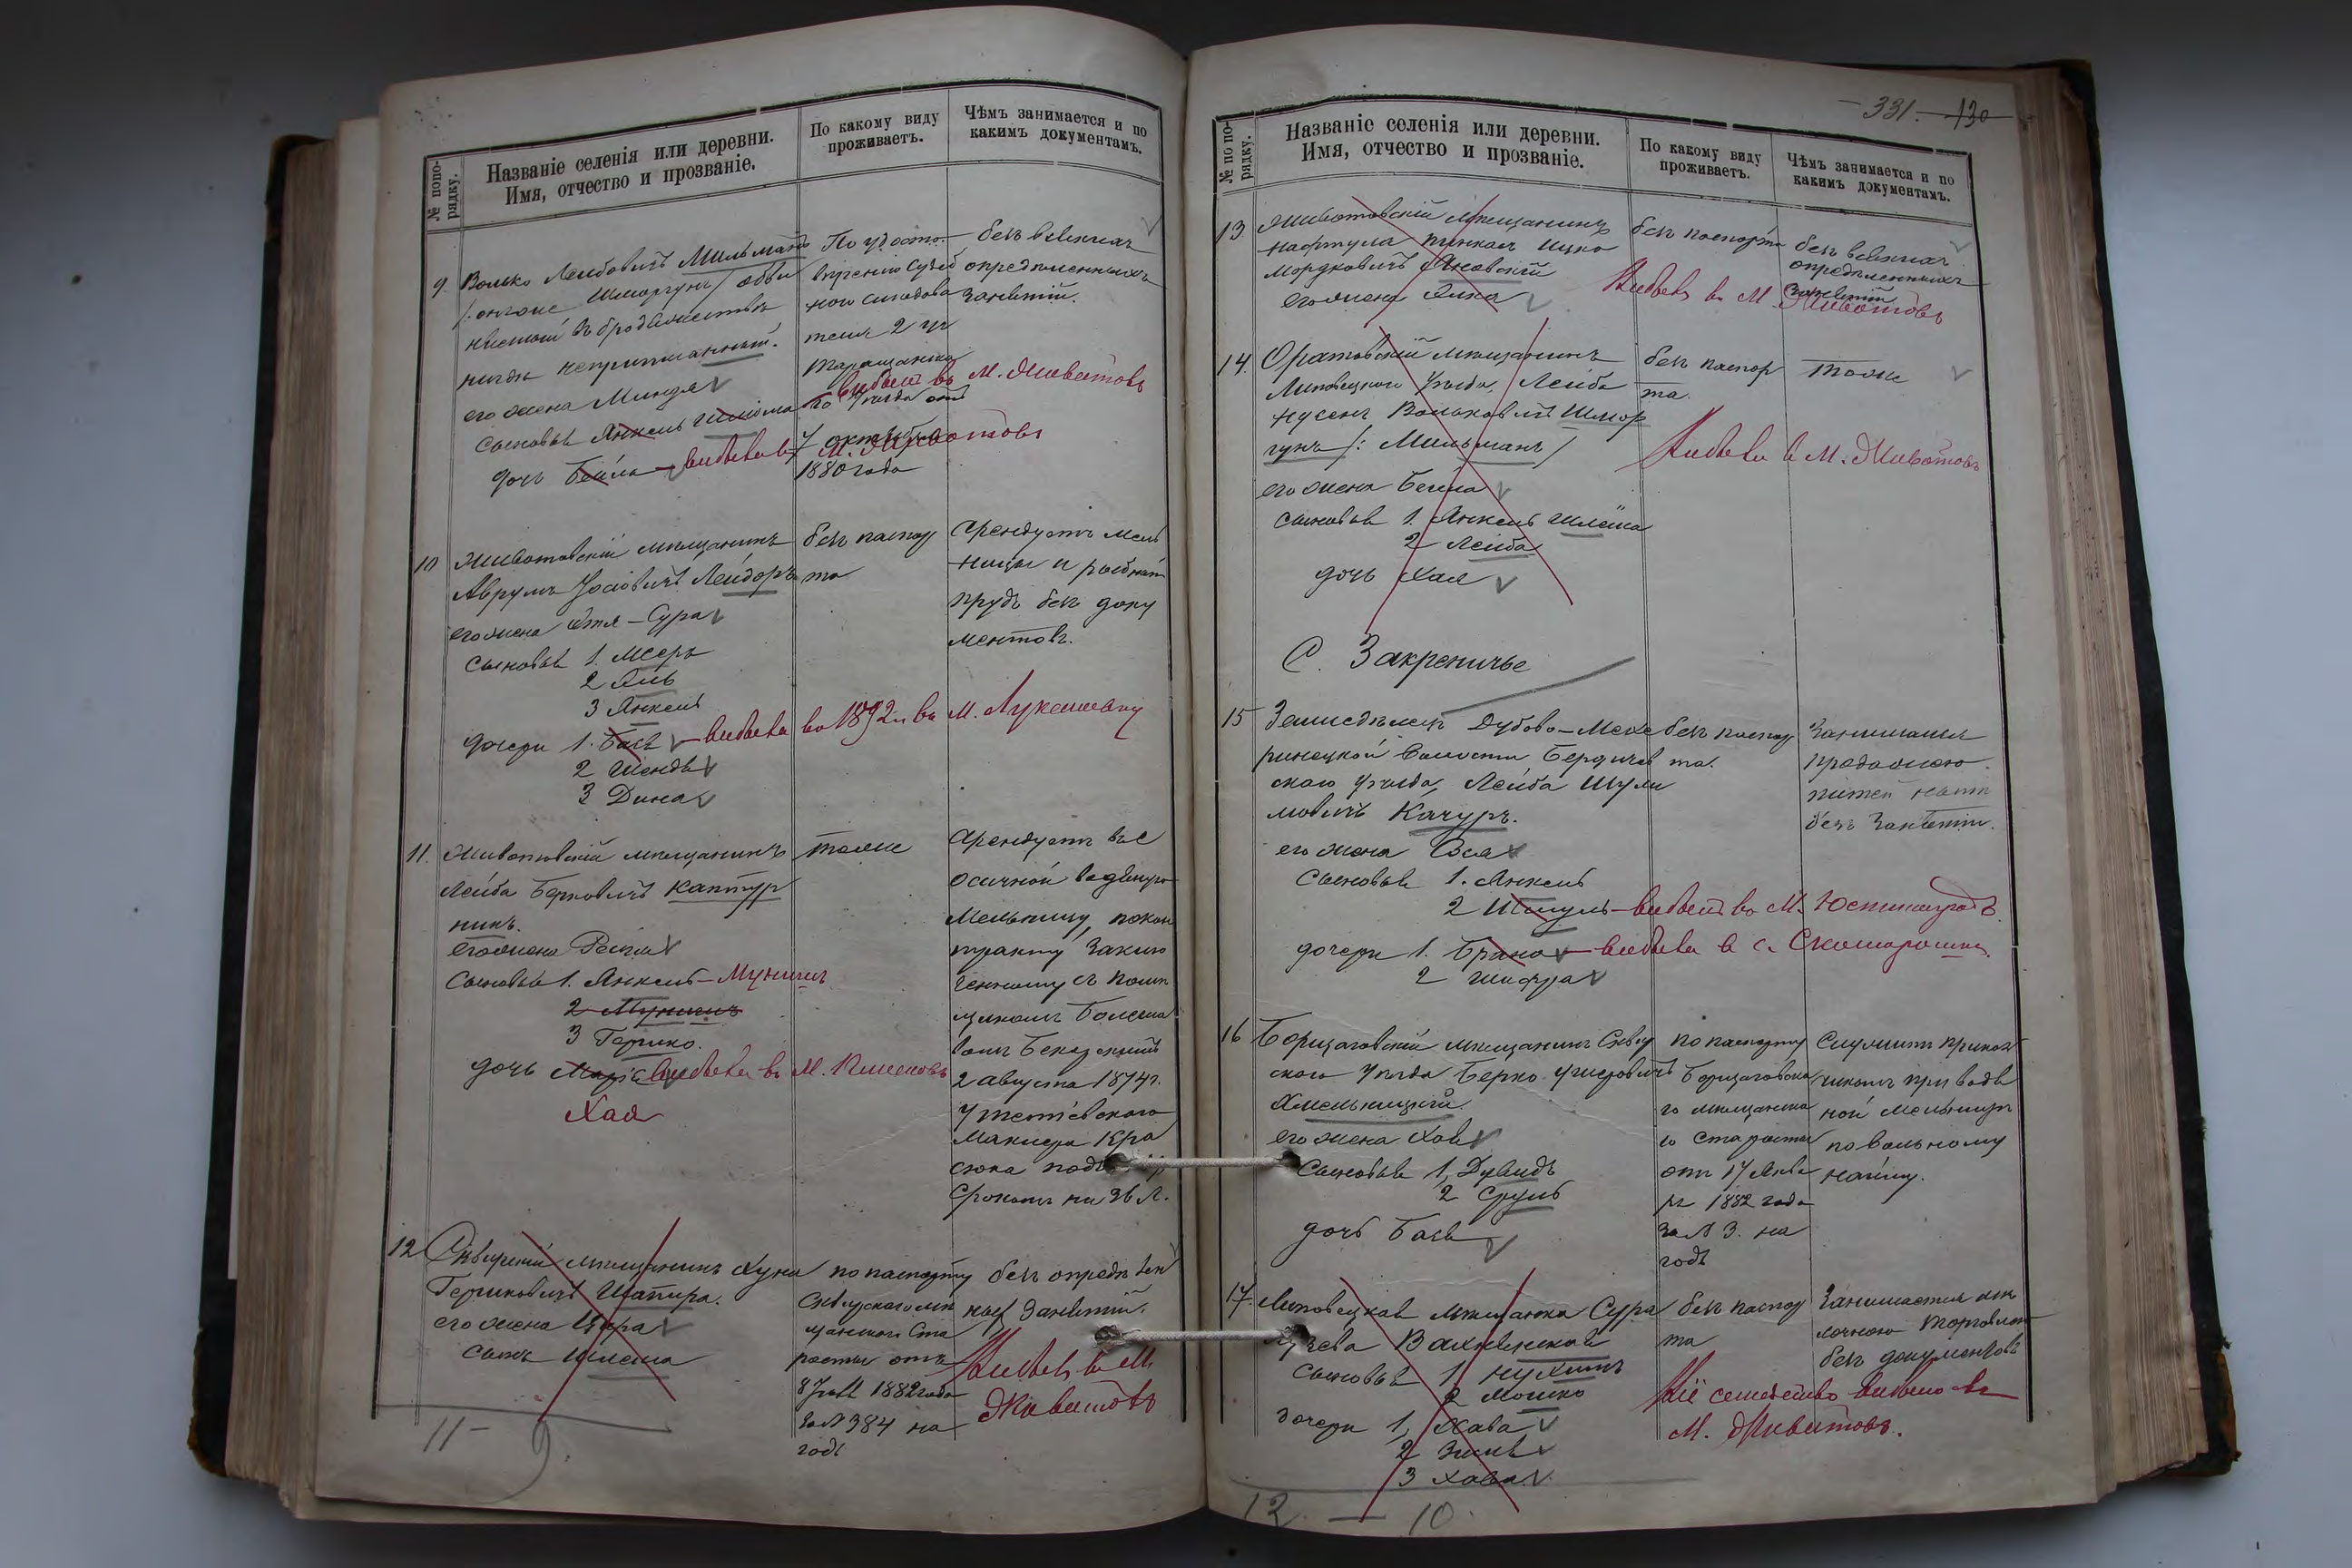 № по по-
рядку.
Названіе селенія или деревни.
Имя, отчество и прозваніе.
По какому виду
проживаетъ.
Чѣмъ занимается и по
какимъ документамъ.
9 Волько Лейбовичъ Мильманъ
/: онъ же Шморгунъ/ обви
няемый въ бродяжествѣ
нигдѣ неприписанный.
его жена Миндля
сыновья Янкель Шлёма
дочь Бейла – выбыла в М. Животовъ
По удосто-
вѣренію Судеб
ного слѣдова
теля 2 уч
Таращанска
го Уѣзда отъ
7 октября
1880 года
безъ всякихъ
опредѣленныхъ
занятій.
выбылъ въ М. Животовъ
10 Животовскій мѣщанинъ
Аврумъ Іосіовичъ Лейдоръ
его жена Этя – Сура
сыновья 1. Мееръ
2
3 Янкель
дочери 1. Бася – выбыла въ 1892 г. въ М. Лукашевку
2 Шендля
3 Дина
безъ паспор
та
Арендуетъ мель
ницы и рыбный
прудъ безъ доку
ментовъ.
11. Животовскій мѣщанинъ
Лейба Берковичъ Каптур
никъ.
его жена Рейзя
Сыновья 1. Янкель – Мунишъ
2 Мунишъ
3 Гершко.
дочь Марія выбыла въ М.
Хая
тоже
Арендуетъ въ с
Осичной водяную
Мельницу, по кон
тракту заклю
ченному съ помѣ
щикомъ Болесла
вомъ
2 августа 1874 г.
у Тетіевского
Маклера Кра
сюка подъ
Срокомъ на 36 л.
12 Сквирскій мѣщанинъ Хуна
Гершковичъ Шапира.
его жена Цыра
сынъ Шлема
по паспорту
Сквирского мѣ
щанского Ста
росты отъ
8 1882 года
за № 384 на
годъ
безъ опредѣлен
ных занятій.
Выбылъ в М.
Животовъ
11 – 9.
– 331. – 130
№ по по-
рядку.
Названіе селенія или деревни.
Имя, отчество и прозваніе.
По какому виду
проживаетъ.
Чѣмъ занимается и по
какимъ документамъ.
13. Животовскій мѣщанинъ
Нафтула Пинхасъ Ицко
Мордковичъ Яновскій
его жена
безъ паспорта
безъ всякихъ
опредѣленныхъ
занятій
Выбылъ въ М. Животовъ
14. Оратовскій мѣщанинъ
Липовецкого Уѣзда, Лейба
Нусенъ Вольковичъ Шмор
гунъ /: Мильманъ /
его жена Бейла
сыновья 1. Янкель Шлёма
2 Лейба
дочь Хая
безъ паспор
та.
тоже
Выбылъ в М. Животовъ
С. Закреничье
15 Земледѣлецъ Дубово-Меже
ринецкой Волости Бердичев
ского Уѣзда, Лейба Шули
мовичъ Качуръ.
его жена Сося
сыновья 1. Янкель
2 Шмуль – выбылъ въ М. Юстинградъ.
дочери 1. Брана – выбыла в с. Скоморошки
2 Шифра
безъ паспор
та.
Занимался
продажею
питей нынѣ
безъ занятій.
16 Борщаговскій мѣщанинъ Сквир
ского Уѣзда Берко Ушеровичъ
Хмельницкій.
его жена Хая
Сыновья 1, Дувидъ
2 Сруль
дочь Бася
по паспорту
Борщаговска
го мѣщанска
го старосты
отъ 17 Янва
ря 1882 года
за № 3. на
годъ
Служитъ приказ
чикомъ при водя
ной мельницѣ
по вольному
найму.
17. Липовецкая мѣщанка Сура
Вахнянская
Сыновья 1, Нухимъ
2 Мошко
дочери 1, Хава
2
3 Хава
безъ паспор
та
Занимается мѣ
лочною торговлею
безъ документовъ
Всё семейство выбыло въ
М. Животовъ.
12. – 10.